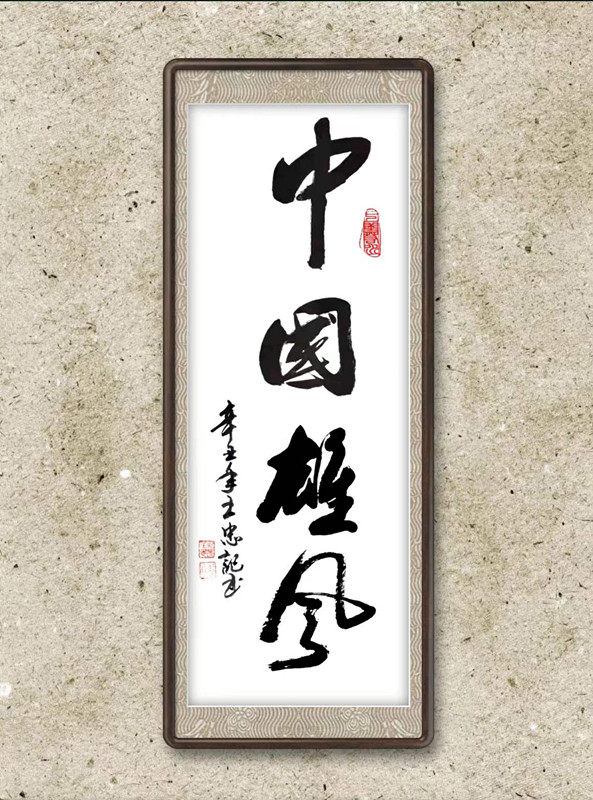 中國雄风
辛丑年王忠龍书